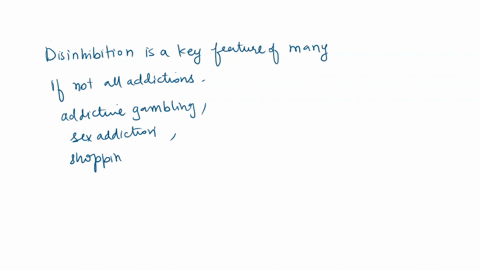 Disinhibition is a key feature of many
If not all addictions.
addictive gambling,
sex addiction,
shoppin